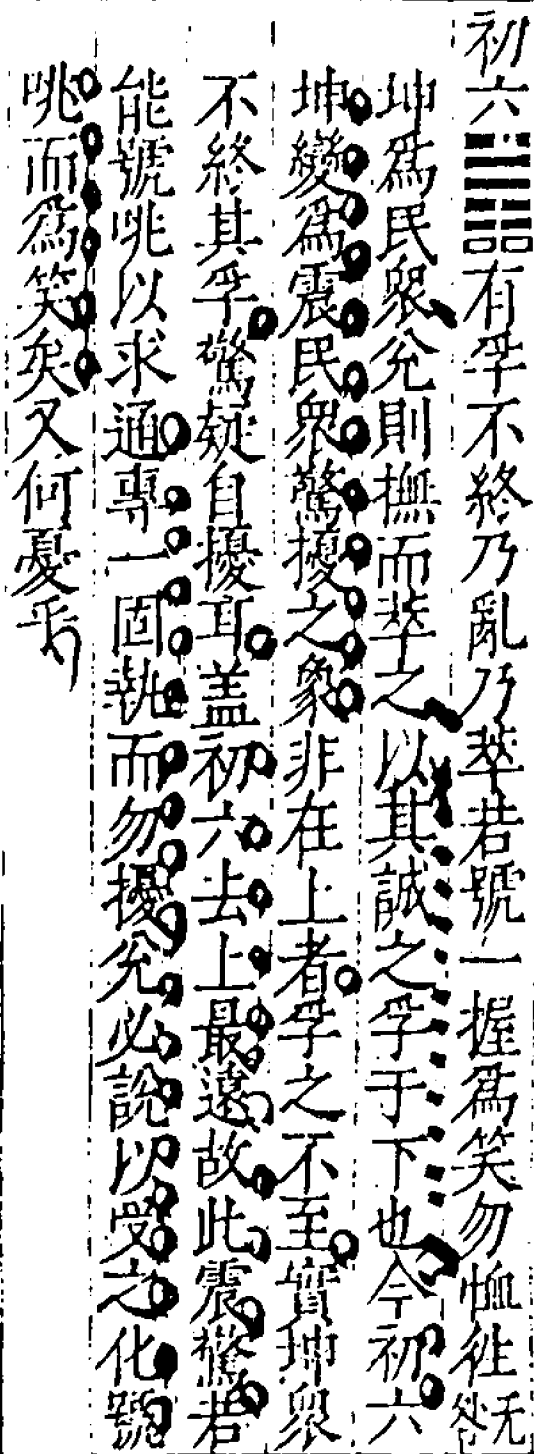 初六有孚不終乃亂乃萃若號一握爲笑勿恤徃无咎
坤爲民衆兊則撫而萃之以其誠之孚于下也今初六
坤變爲震民衆驚擾之象非在上者孚之不至實坤衆
不終其孚驚疑自擾耳盖初六去上最遠故此震驚若
能號咷以求通專一固執而勿擾兊必說以受之化號
咷而爲笑矣又何憂乎